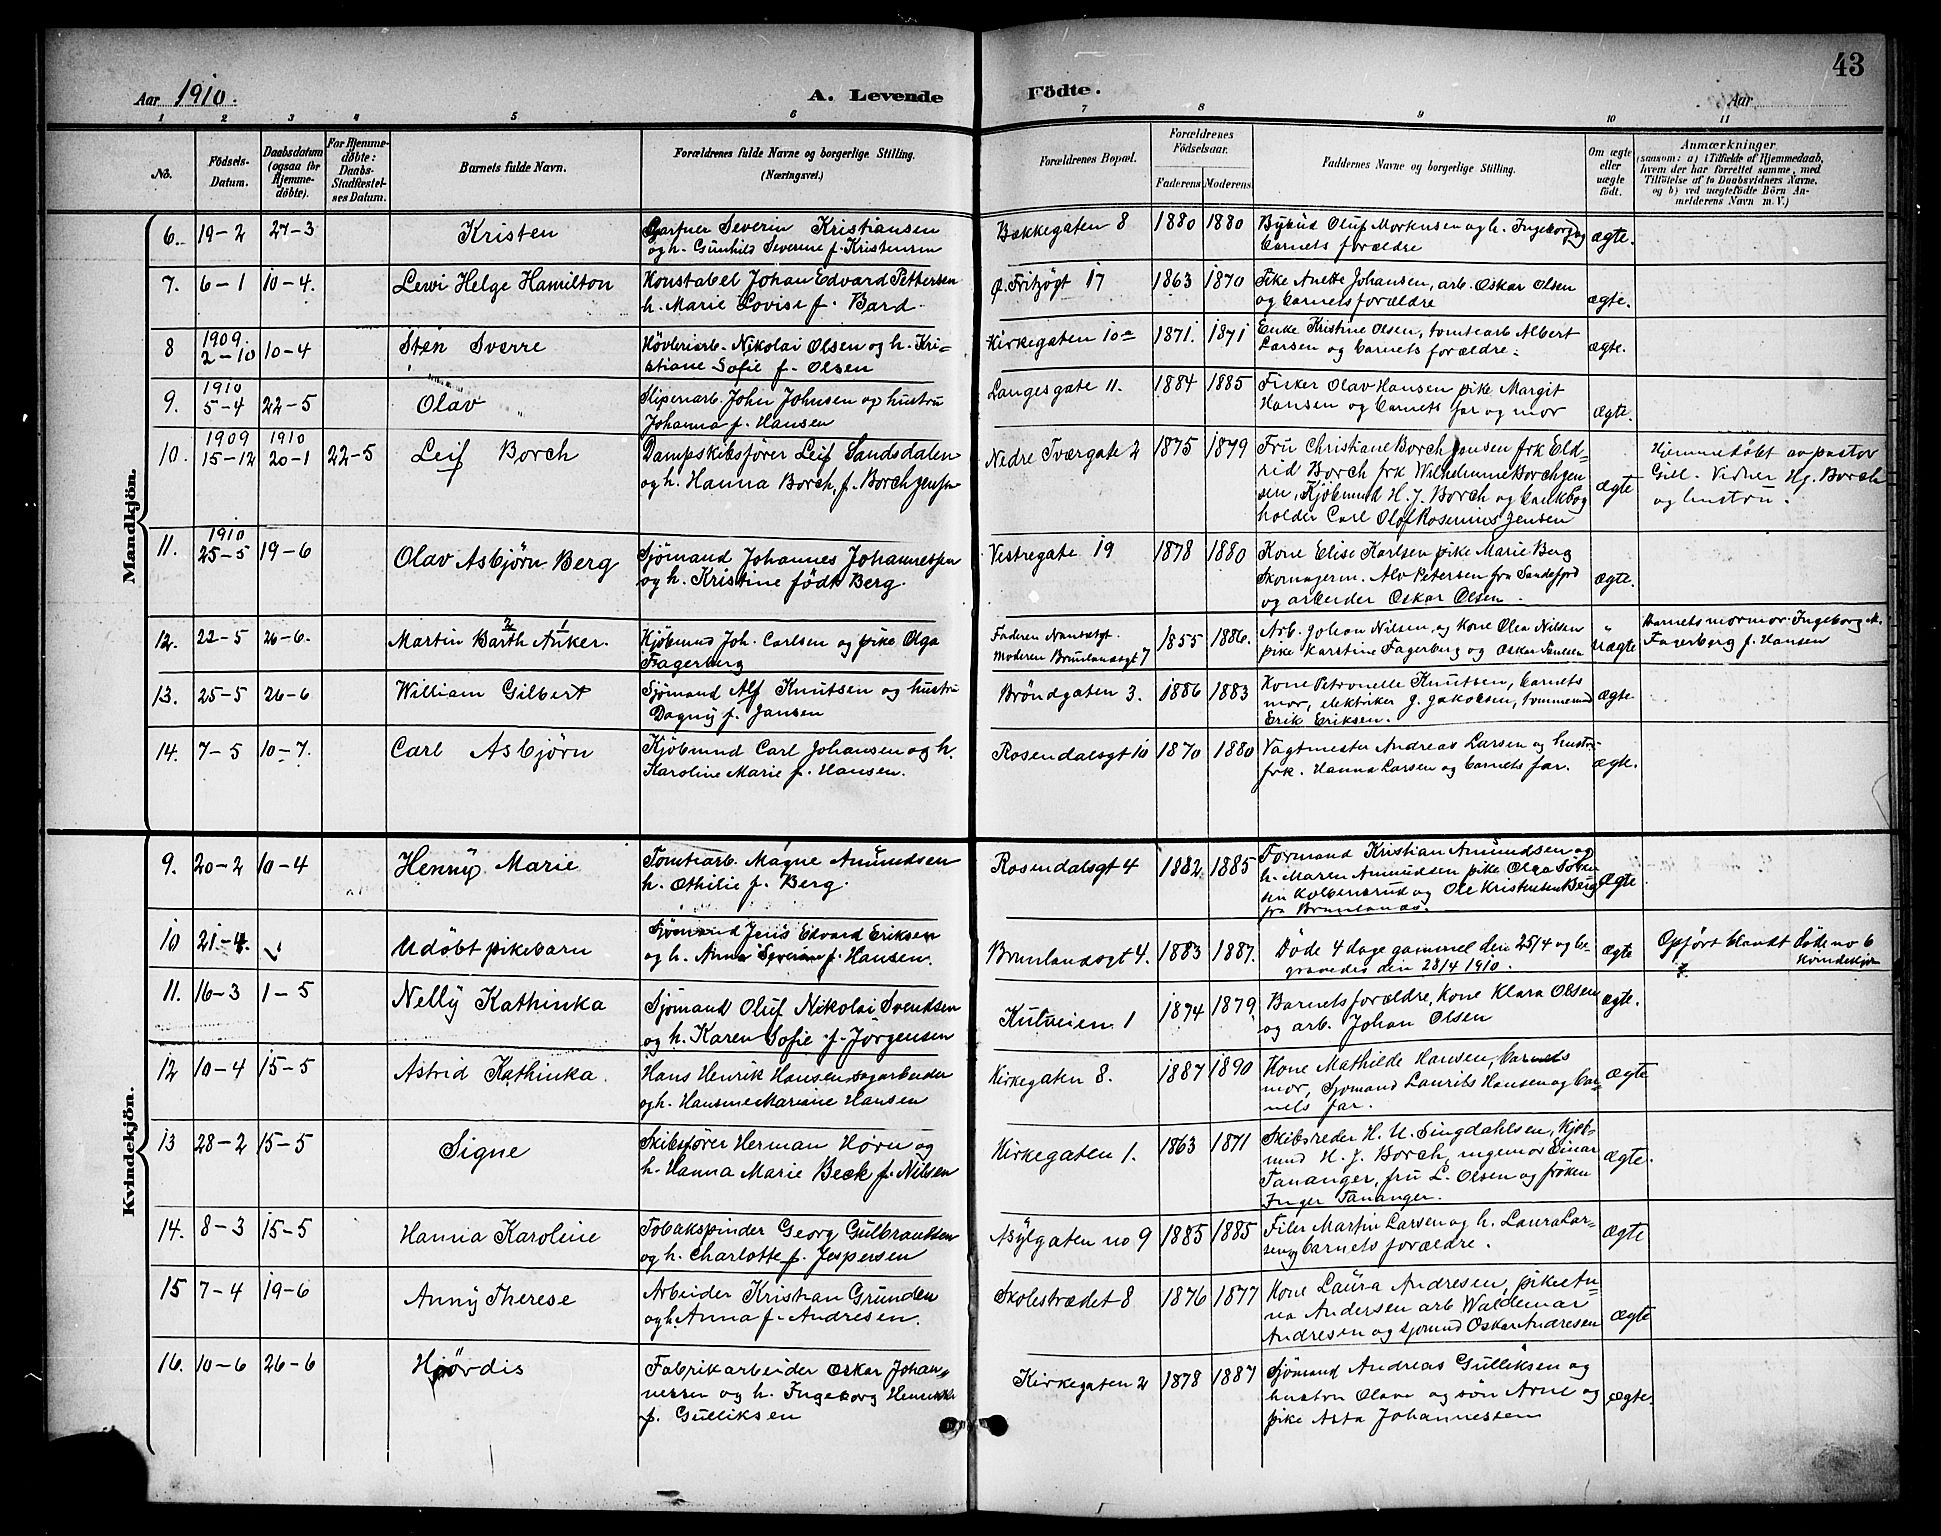 43
Aar 1910.
A. Levende Födte.
Aar
1 2 3 4 5 6 7 8 9 10 11
No.
Födsels-Datum.
Daabsdatum (ogsaa for Hjemme-döbte).
For Hjemme-döbte: Daabs-Stadfæstel-ses Datum.
Barnets fulde Navn.
Forældrenes fulde Navne og borgerlige Stilling. (Næringsvei.)
Forældrenes Bopæl.
Forældrenes Födselsaar.
Faderens Moderens
Faddernes Navne og borgerlige Stilling.
Om ægte eller uægte födt.
Anmærkninger
(saasom: a) i Tilfælde af Hjemmedaab, hvem der har forrettet samme, med Tilföielse af to Daabsvidners Navne, og b) ved uægtefödte Börn An-melderens Navn m. V.)
Mandkjön.
6. 19-2 27-3 Kristen
Gartner Severin Kristiansen
og h. Gunhild Severine f. Kristensen
Bakkegaten 8 1880 1880
Olup Mortensen og h. Ingeborg og
barnets forældre
ægte.
7. 6-1 10-4. Lewi Helge Hamilton
Konstabel Johan Edvard Pettersen
h. Marie Lovise f. Bard.
Ø. Fritzøgt 17 1863 1870
Pike Anette Johansen, arb. Oskar Olsen
og barnets forældre
ægte.
8 1909. 2-10 10-4 Sten Sverre
Høvleriarb. Nikolai Olsen og h. Kri-
stiane Sofie f. Olsen
Kirkegaten 10a 1871. 1871
Enke Kristine Olsen, tomtearb Albert
Larsen og barnets forældre.
ægte.
9. 1910 5-4 22-5 Olav
Sliperiarb. John Johnsen og hustru
Johanna f. Hansen
Langesgate 11. 1884 1885
Fisker Olav Hansen pike Margit
Hansen og barnets far og mor
Ægte.
10. 1909 15-12 1910 20-1 22-5 Leif Borch
Dampskibsfører Leif Sandsdalen
og h. Hanna Borch, f. Borchjensen
Nedre Tværgate 2 1875 1879
Fru Christiane Borch Jensen frk Eld-
rid Borch frk Wilhelmine Borchjen-
sen, Kjöbmand H. J. Borch og bankbog
holder Carl Olof Rosenius Jensen
ægte
Hjemmedøbt av pastor
Gill. Vidner Hj. Borch
og hustru.
11. 1910 25-5 19-6 Olav Asbjørn Berg
Sjømand Johannes Johannessen
og h. Kristine født Berg.
Vestregate 19 1878 1880
Kone Elise Karlsen pike Marie Berg
Skomagerm. Alv Petersen fra Sandefjord
og arbeider Oskar Olsen.
ægte.
12. 22-5 26-6. Martin Barth 2 Anker. 1
Kjøbmand Joh. Carlsen og pike Olga
Fagerberg
Faderen Nansetgt.
Moderen Brunlandsgt 7 1855 1886.
Arb. Johan Nilsen, og Kone Olea Nilsen
pike Karstine Fagerberg og Oskar Paulsen
uægte
Barnets mormor Ingeborg M.
Fagerberg f. Hansen
13. 25-5 26-6 William Gilbert
Sjømand Alf Knutsen og hustru
Dagny f. Jansen
Bröndgaten 3. 1886 1883
Kone Petronelle Knutsen, barnets
mor, elektriker J. Jakobsen, tømmermand
Erik Eriksen.
ægte.
14. 7-5 10-7. Carl Asbjörn
Kjöbmand Carl Johansen og h.
Karoline Marie f. Hansen.
Rosendalsgt 10 1870 1880
Vagtmester Andreas Larsen og hustru
frk. Hanna Larsen og barnets far.
ægte.
Kvindekjön.
9. 20-2 10-4 Henny Marie
Tomtearb. Magne Amundsen
h. Othilie f. Berg.
Rosendalsgt 4 1882 1885
Formand Kristian Amundsen og
h. Maren Amundsen pike Olga
og Ole Kristensen Berg
fra Brunlanæs.
Ægte
10 21-4. Udöbt pikebarn
Sjömand Jens Edvard Eriksen
og h. Anna f. Hansen.
Brunlandsgt 4. 1883 1887.
Døde 4 dage gammel den 25/4 og be-
gravedes den 28/4 1910.
ægte
Opført blandt døde no 6
kvindekjön
11. 16-3 1-5 Nelly Kathinka
Sjømand Oluf Nikolai Svendsen
og h. Karen Sofie f. Jörgensen
Kutveien 1 1874 1879
Barnets forældre, Kone Klara Olsen
og arb. Johan Olsen
ægte.
12 10-4 15-5 Astrid Kathinka.
Hans Henrik Hansen sagarbeider
og h. Hansine Mariane Hansen
Kirkegaten 8. 1887 1890
Kone Mathilde Hansen, barnets
mor, Sjømand Laurits Hansen og bar-
nets far.
ægte
13 28-2 15-5 Signe
Skibsfører Herman Hørn og
h. Hanna Marie Beck f. Nilsen
Kirkegaten 1. 1863 1871
Skibsreder H. U. Singdahlsen, Kjøb-
mand H. J. Borch, ingeniør Einar
Tananger, fru L. Olsen og frøken
Inger Tananger.
ægte.
14. 8-3 15-5 Hanna Karoline
Tobakspinder Georg Gulbrandsen
og h. Charlotte f. Jespersen
Asylgaten no 9 1885 1885
Filer Martin Larsen og h. Laura Lar-
sen og barnets forældre.
ægte
15 7-4 19-6 Anny Therese
Arbeider Kristian Grunden
og h. Anna f. Andresen.
Skolestrædet 8 1876 1877
Kone Laura Andresen, pike An-
na Andersen arb Waldemar
Andresen og sjømd Oskar Andresen
ægte
16. 10-6 26-6 Hjördis
Fabrikarbeider Oskar Johan-
nessen og h. Ingeborg Henrikke
f. Gulliksen
Kirkegaten 2 1878 1887
Sjömand Andreas Gulliksen og
hustru Olava og søn Arne og
pike Asta Johannessen
ægte.